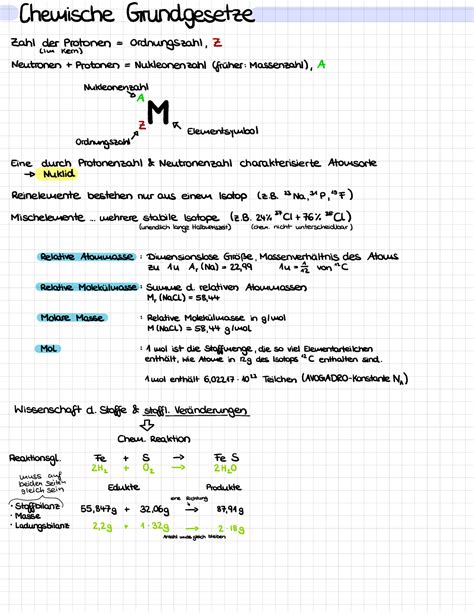 Chemische Grundgesetze
Zahl der Protonen = Ordnungszahl, Z
(im Kern)
Neutronen + Protonen = Nukleonenzahl (früher: Massenzahl), A
Nukleonenzahl
A
M
Z
Elementsymbol
Ordnungszahl
Eine durch Protonenzahl & Neutronenzahl charakterisierte Atomsorte
→ Nuklid
Reinelemente bestehen nur aus einem Isotop (z.B. ²³Na, ³¹P, ¹⁹F)
Mischelemente ... mehrere stabile Isotope (z.B. 24% ³⁷Cl + 76% ³⁵Cl)
(unendlich lange Halbwertszeit) (chem. nicht unterscheidbar)
Relative Atommasse : Dimensionslose Größe, Massenverhältnis des Atoms
zu 1u Aᵣ(Na) = 22,99 1u = 1/12 von ¹²C
Relative Molekülmasse : Summe d. relativen Atommassen
Mᵣ(NaCl) = 58,44
Molare Masse : Relative Molekülmasse in g/mol
M(NaCl) = 58,44 g/mol
Mol : 1 mol ist die Stoffmenge, die so viel Elementarteilchen
enthält, wie Atome in 12g des Isotops ¹²C enthalten sind.
1 mol enthält 6,02217 · 10²³ Teilchen (AVOGADRO-Konstante N_A)
Wissenschaft d. Stoffe & stoffl. Veränderungen
Chem. Reaktion
Reaktionsgl. Fe + S → FeS
2H₂ + O₂ → 2H₂O
muss auf
beiden Seiten
gleich sein
Edukte Produkte
eine Richtung
· Stoffbilanz
55,847g + 32,06g → 87,91g
· Masse
· Ladungsbilanz 2,2g + 1·32g → 2·18g
Anzahl muss gleich bleiben